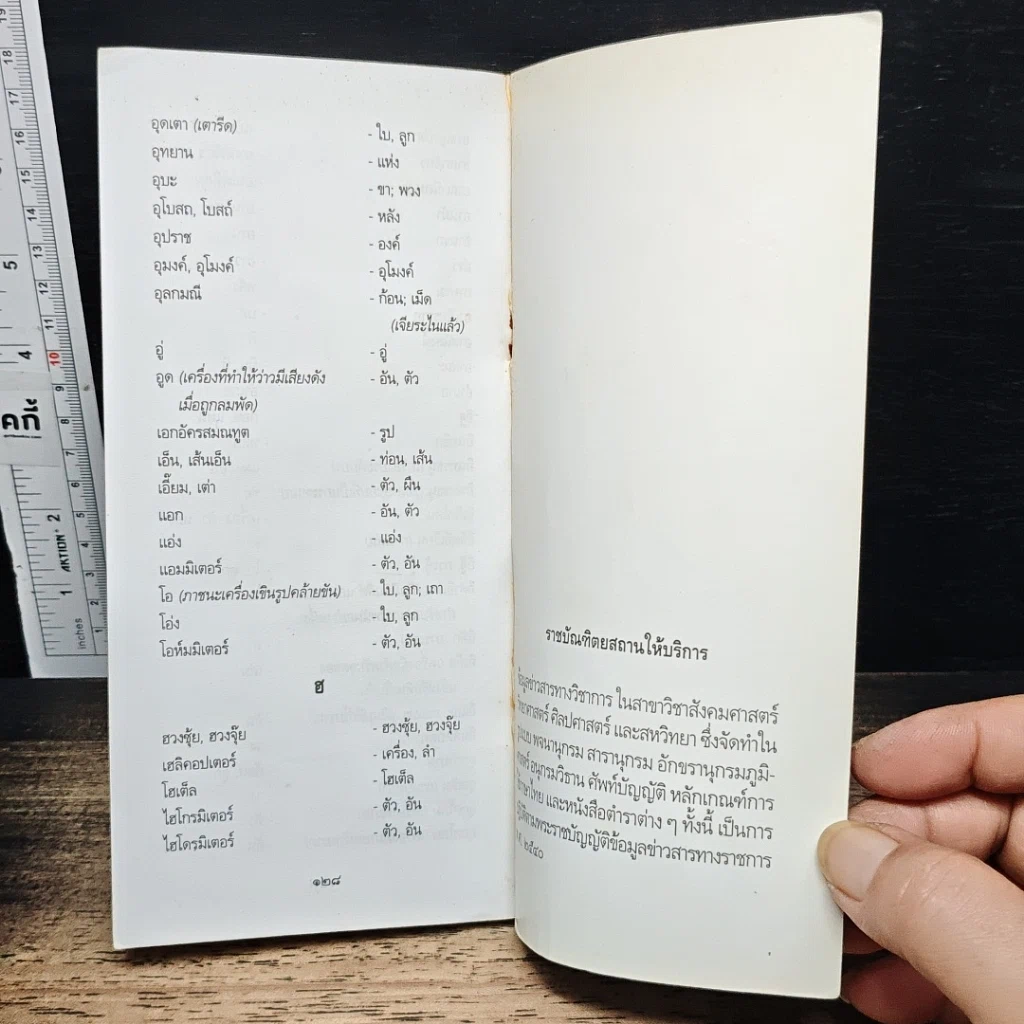 อุดเตา (เตารีด) - ใบ, ลูก
อุทยาน - แห่ง
อุบะ - ขา; พวง
อุโบสถ, โบสถ์ - หลัง
อุปราช - องค์
อุมงค์, อุโมงค์ - อุโมงค์
อุลกมณี - ก้อน; เม็ด
(เจียระไนแล้ว)
อู่ - อู่
อูด (เครื่องที่ทำให้ว่าวมีเสียงดัง - อัน, ตัว
เมื่อถูกลมพัด)
เอกอัครสมณทูต - รูป
เอ็น, เส้นเอ็น - ท่อน, เส้น
เอี๊ยม, เต่า - ตัว, ผืน
แอก - อัน, ตัว
แอ่ง - แอ่ง
แอมมิเตอร์ - ตัว, อัน
โอ (ภาชนะเครื่องเขินรูปคล้ายขัน) - ใบ, ลูก; เถา
โอ่ง - ใบ, ลูก
โอห์มมิเตอร์ - ตัว, อัน
ฮ
ฮวงซุ้ย, ฮวงจุ๊ย - ฮวงซุ้ย, ฮวงจุ๊ย
เฮลิคอปเตอร์ - เครื่อง, ลำ
โฮเต็ล - โฮเต็ล
ไฮโกรมิเตอร์ - ตัว, อัน
ไฮโดรมิเตอร์ - ตัว, อัน
๑๒๘
ราชบัณฑิตยสถานให้บริการ
ข้อมูลข่าวสารทางวิชาการ ในสาขาวิชาสังคมศาสตร์
วิทยาศาสตร์ ศิลปศาสตร์ และสหวิทยา ซึ่งจัดทำใน
พจนานุกรม สารานุกรม อักขรานุกรมภูมิ-
อนุกรมวิธาน ศัพท์บัญญัติ หลักเกณฑ์การ
และหนังสือตำราต่าง ๆ ทั้งนี้ เป็นการ
ข้อมูลข่าวสารทางราชการ
๒๕๔๐
inches
AKTION
1
2
4
5
2
3
4
5
6
7
8
9
10
11
12
13
14
15
16
17
18
19